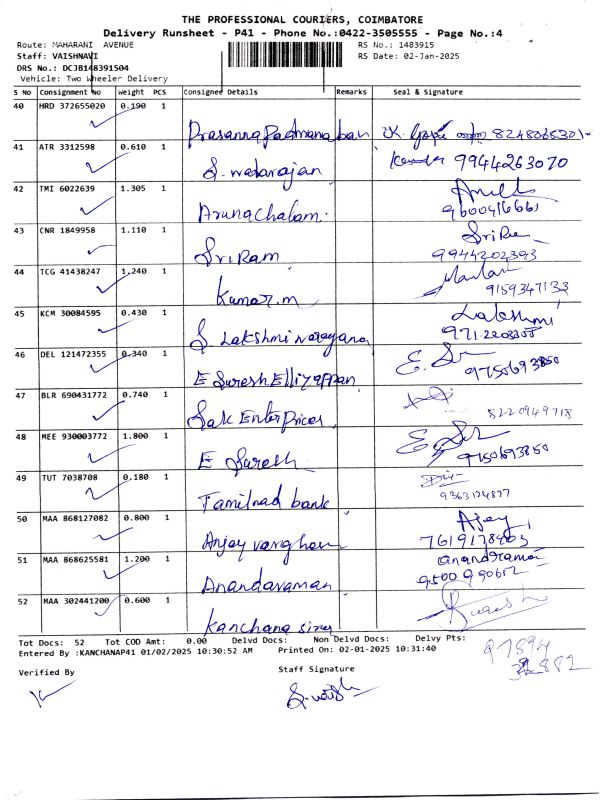 THE PROFESSIONAL COURIERS, COIMBATORE
Delivery Runsheet - P41 - Phone No.:0422-3505555 - Page No.:4
Route: MAHARANI AVENUE RS No.: 1483915
Staff: VAISHNAVI RS Date: 02-Jan-2025
DRS No.: DCJB148391504
Vehicle: Two Wheeler Delivery
S No Consignment No Weight PCS Consignee Details Remarks Seal & Signature
40 HRD 372655020 0.190 1
Prasanna Padmanaban 8248065301-
41 ATR 3312598 0.610 1
S. natarajan 9944263070
42 TMI 6022639 1.305 1
Arunachalam. 9600416661
43 CNR 1849958 1.110 1
SriRam SriRam
9944202393
44 TCG 41438247 1.240 1
Kumar.m 9159347133
45 KCM 30084595 0.430 1 Lakshmi
S. Lakshmi narayana
46 DEL 121472355 0.340 1
E Suresh Elliyappan 9750693850
47 BLR 690431772 0.740 1
Sak EnterPrices 8220949718
48 MEE 930003772 1.800 1
E Suresh 9750693850
49 TUT 7038708 0.180 1
Tamilnad bank
50 MAA 868127082 0.800 1 Ajay
Anjay varghan
51 MAA 868625581 1.200 1 Anandraman
Anandaraman
52 MAA 302441200 0.600 1
Kanchana
Tot Docs: 52 Tot COD Amt: 0.00 Delvd Docs: Non Delvd Docs: Delvy Pts:
Entered By :KANCHANAP41 01/02/2025 10:30:52 AM Printed On: 02-01-2025 10:31:40
Verified By Staff Signature